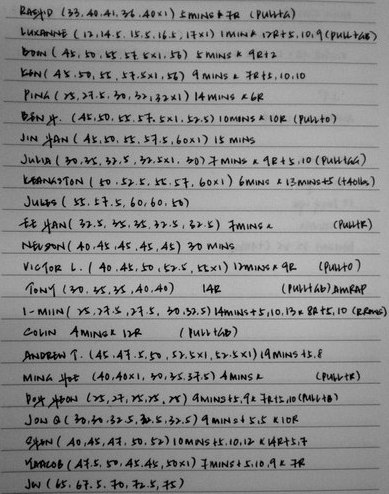 RASYID (33, 40, 41, 36, 40x1) 5 MINS x 7R (PULL+G)
LUXANNE (12, 14.5, 15.5, 16.5, 17x1) 1MIN x 12R+5, 10, 9 (PULL+GB)
(45, 50, 55, 57.5x1, 56) 5 MINS x 9R+2
KEN (45, 50, 55, 57.5x1, 56) 9 MINS x 7R+5, 10, 10
PING (25, 27.5, 30, 32, 32x1) 14 MINS x 6R
BEN H. (45, 50, 55, 57.5x1, 52.5) 10MINS x 10R (PULL+O)
JIN HAN (45, 50, 55, 57.5, 60x1) 15 MINS
JULIA (30, 35, 32.5, 32.5x1, 30) 7 MINS x 9R+5, 10 (PULL+GG)
(50, 52.5, 55, 57, 60x1) 6MINS x 13MINS+5 (+40lbs)
JULES (55, 57.5, 60, 60, 50)
EE HAN (32.5, 35, 35, 32.5, 32.5) 7MINS x (PULL+R)
NELSON (40, 45, 45, 45, 45) 30 MINS
VICTOR L. (40, 45, 50, 52.5, 55x1) 12MINS x 9R (PULL+O)
TONY (30, 35, 35, 40, 40) 14R (PULL+GB) AMRAP
I-MIIN (25, 27.5, 27.5, 30, 32.5) 14MINS+5, 10, 13 x 8R+5, 10
COLIN 4MINS x 12R (PULL+GB)
ANDREW T. (45, 47.5, 50, 52.5x1, 52.5x1) 19MINS+5, 8
MING (40, 40x1, 30, 35, 37.5) 4MINS x (PULL+R)
(25, 27, 25, 25, 25) 9MINS+5, 9 x 7R+5, 10 (PULL+B)
JON Q (30, 30, 32.5, 32.5, 32.5) 9 MINS+5, 5 x 10R
(40, 45, 47, 50, 52) 10MINS+5, 10, 12 x 14R+5, 7
(47.5, 50, 45, 45, 50x1) 7MINS+5, 10, 9 x 7R
JW (65, 67.5, 70, 72.5, 75)